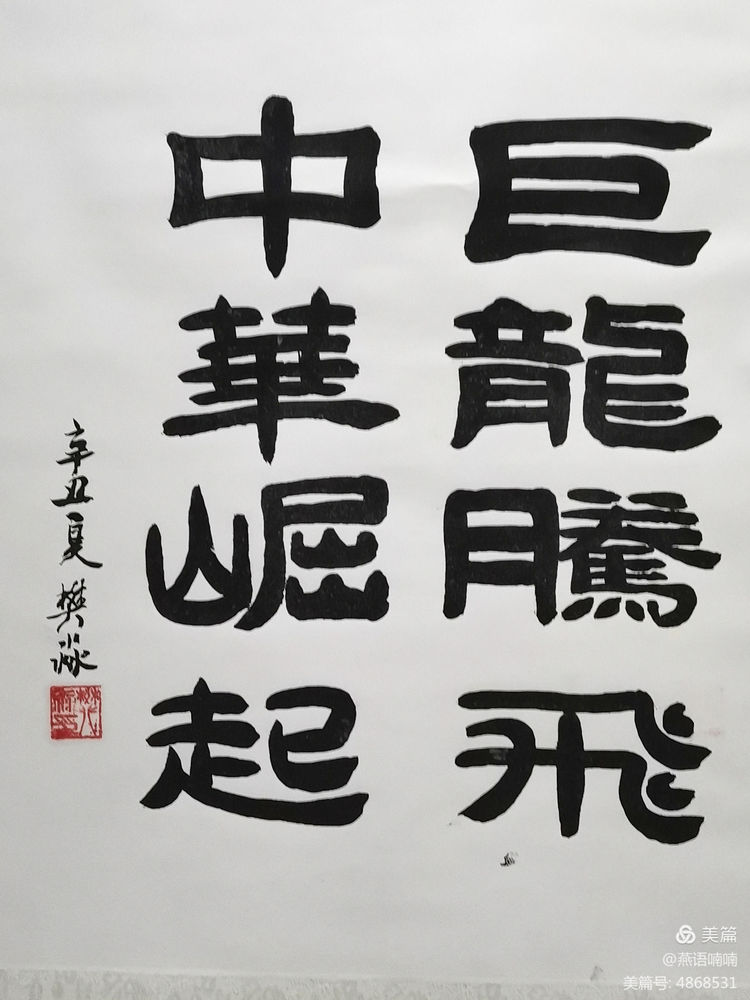 巨龍騰飛
中華崛起
辛丑夏樊淼
美篇
@燕语喃喃
美篇号: 4868531